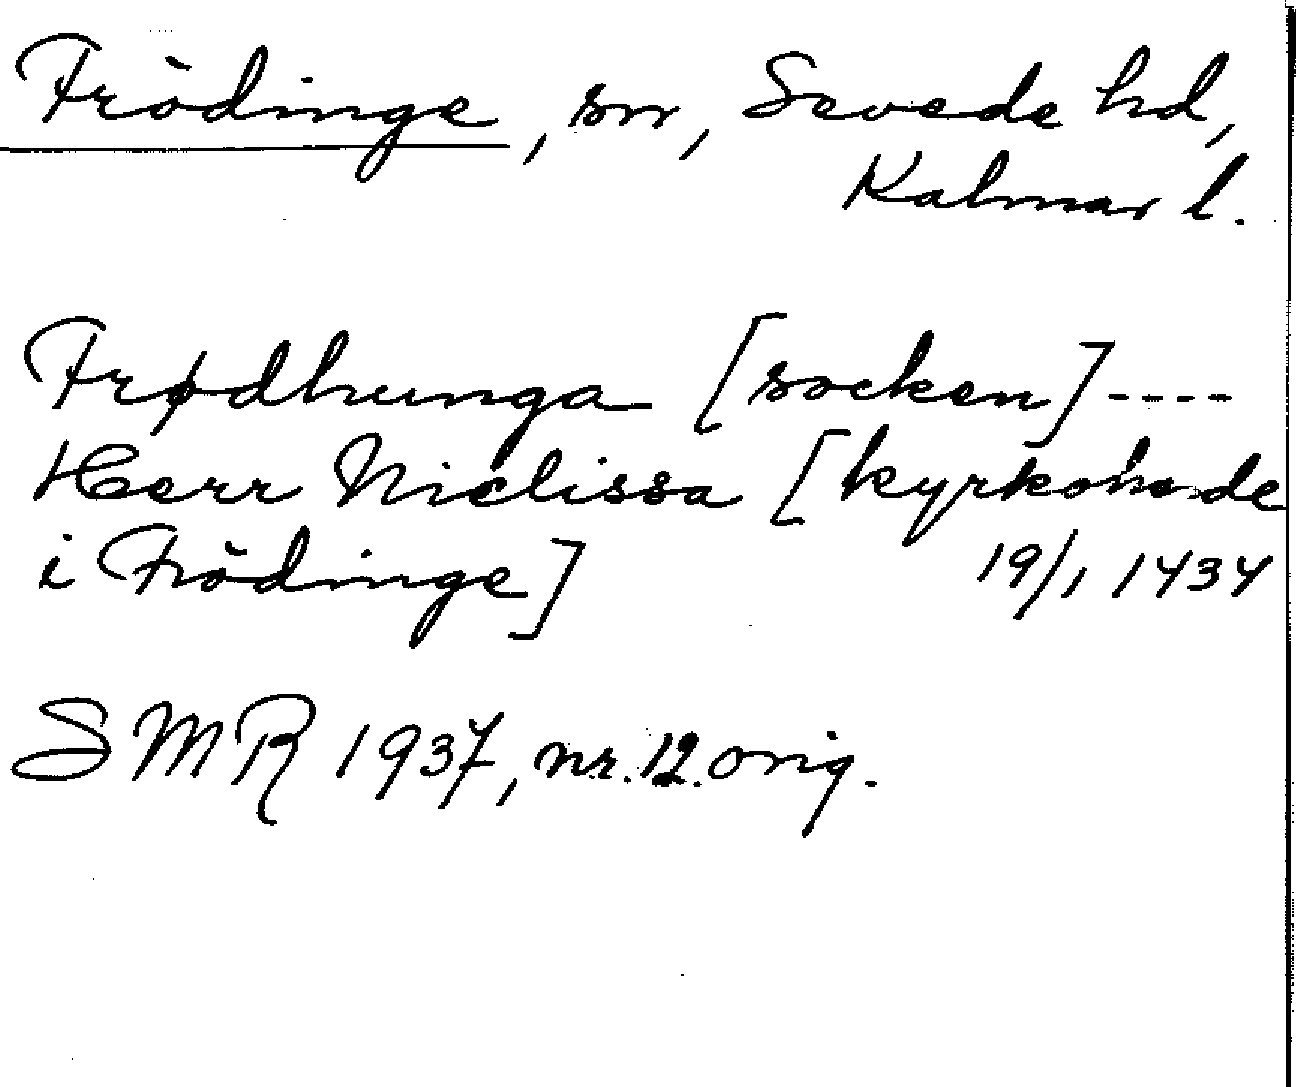 Frödinge, sn, Sevede hd,
Kalmar l.
Frødhunga [socken] ----
Herr Niclissa [kyrkoherde
i Frödinge] 19/1 1434
SMR 1937, nr. 12. orig.